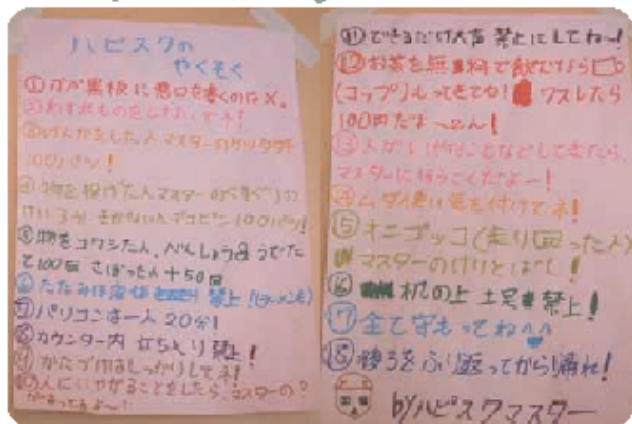 ハピスクの
やくそく
①カベ黒板に悪口を書くのは×。
②わすれものをしないでネ!
③けんかをした人マスターの
100パツ!
④物を投げた人マスターの
100パツ!
⑤物をコワシた人、べんしょう&うでた
て100回 さぼったら+50回
禁止!(ラーメンも)
⑦パソコンは一人20分!
⑧カウンター内 立ち入り禁止!
⑨かたづけはしっかりしてネ!
⑩人にいやがることをしたら、マスターの?
⑪できるだけ大声 禁止にしてね〜!
⑫お茶を無料で飲むなら
(コップ)もってきてね! ワスレたら
100円だよ〜ん!
⑬人がいやなことなどしてきたら、
マスターに行うこくだよー!
⑭ムダ使い気を付けてネ!
⑮オニゴッコ(走り回った人)
マスターのけりとばし!
⑯机の上 土足禁止!
⑰全て守もってね^^
⑱後ろをふり返ってから!帰れ!
byハピスクマスター